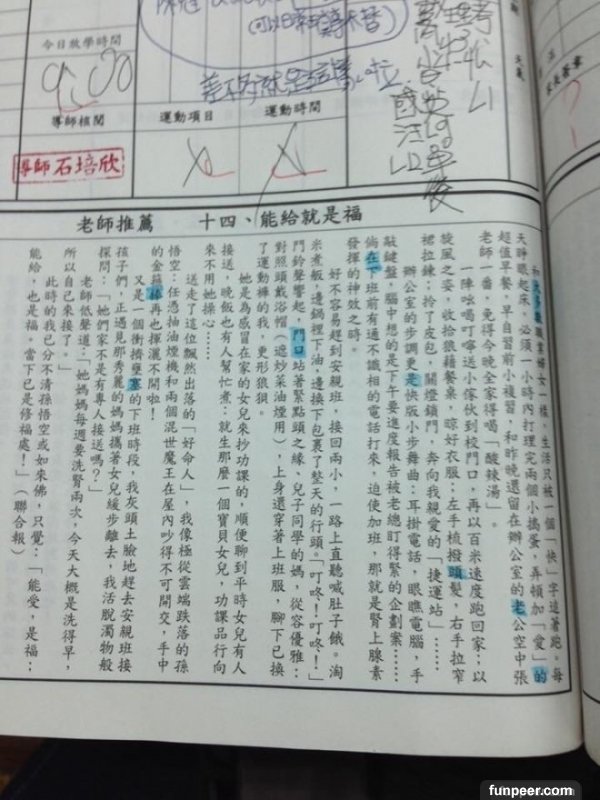 今日放學時間
導師核閱
運動項目
運動時間
導師石培欣
老師推薦 十四、能給就是福
和大多數職業婦女一樣,生活只被一個「快」字追著跑。每
天睜眼起床,必須一小時內打理完兩個小搗蛋,弄頓加「愛」的
超值早餐,早自習前小複習,和昨晚還留在辦公室的老公空中張
老師一番,免得今晚全家得喝「酸辣湯」。
一陣吆喝叮嚀送小傢伙到校門口,再以百米速度跑回家;以
旋風之姿,收拾狼藉餐桌,晾好衣服;左手梳撥頭髮,右手拉窄
裙拉鍊;拎了皮包,關燈鎖門,奔向我親愛的「捷運站」……
辦公室的步調更是快版小步舞曲:耳掛電話,眼瞧電腦,手
敲鍵盤,腦中想的是下午要進度報告被老總盯得緊的企劃案……
倘在下班前有通不識相的電話打來,迫使加班,那就是腎上腺素
發揮的神效之時。
好不容易趕到安親班,接回兩小,一路上直聽喊肚子餓。淘
米煮飯,邊鍋裡下油,邊換下包裹了整天的行頭。「叮咚!叮咚!」
門鈴聲響起,門口站著緊點頭之緣、兒子同學的媽,從容優雅;
對照頭戴浴帽(遮炒菜油煙用),上身還穿著上班服,腳下已換
了運動褲的我,更形狼狽。
她是為感冒在家的女兒來抄功課的,順便聊到平時女兒有人
接送,晚飯也有人幫忙煮;就生那麼一個寶貝女兒,功課品行向
來不用她操心……
送走了這位飄然出落的「好命人」,我像極從雲端跌落的孫
悟空;任憑抽油煙機和兩個混世魔王在屋內吵得不可開交,手中
的金箍棒再也揮灑不開啦!
又是一個衝擠壅塞的下班時段,我灰頭土臉地趕去安親班接
孩子們,正遇見那秀麗的媽媽攜著女兒緩步離去,我活脫濁物般
探問:「她們家不是有專人接送嗎?」
老師低聲道:「她媽媽每週要洗腎兩次,今天大概是洗得早,
所以自己來接了。」
此時的我已分不清孫悟空或如來佛,只覺:「能愛,是福;
能給,也是福。當下已是修福處!」(聯合報)
funpeer.com